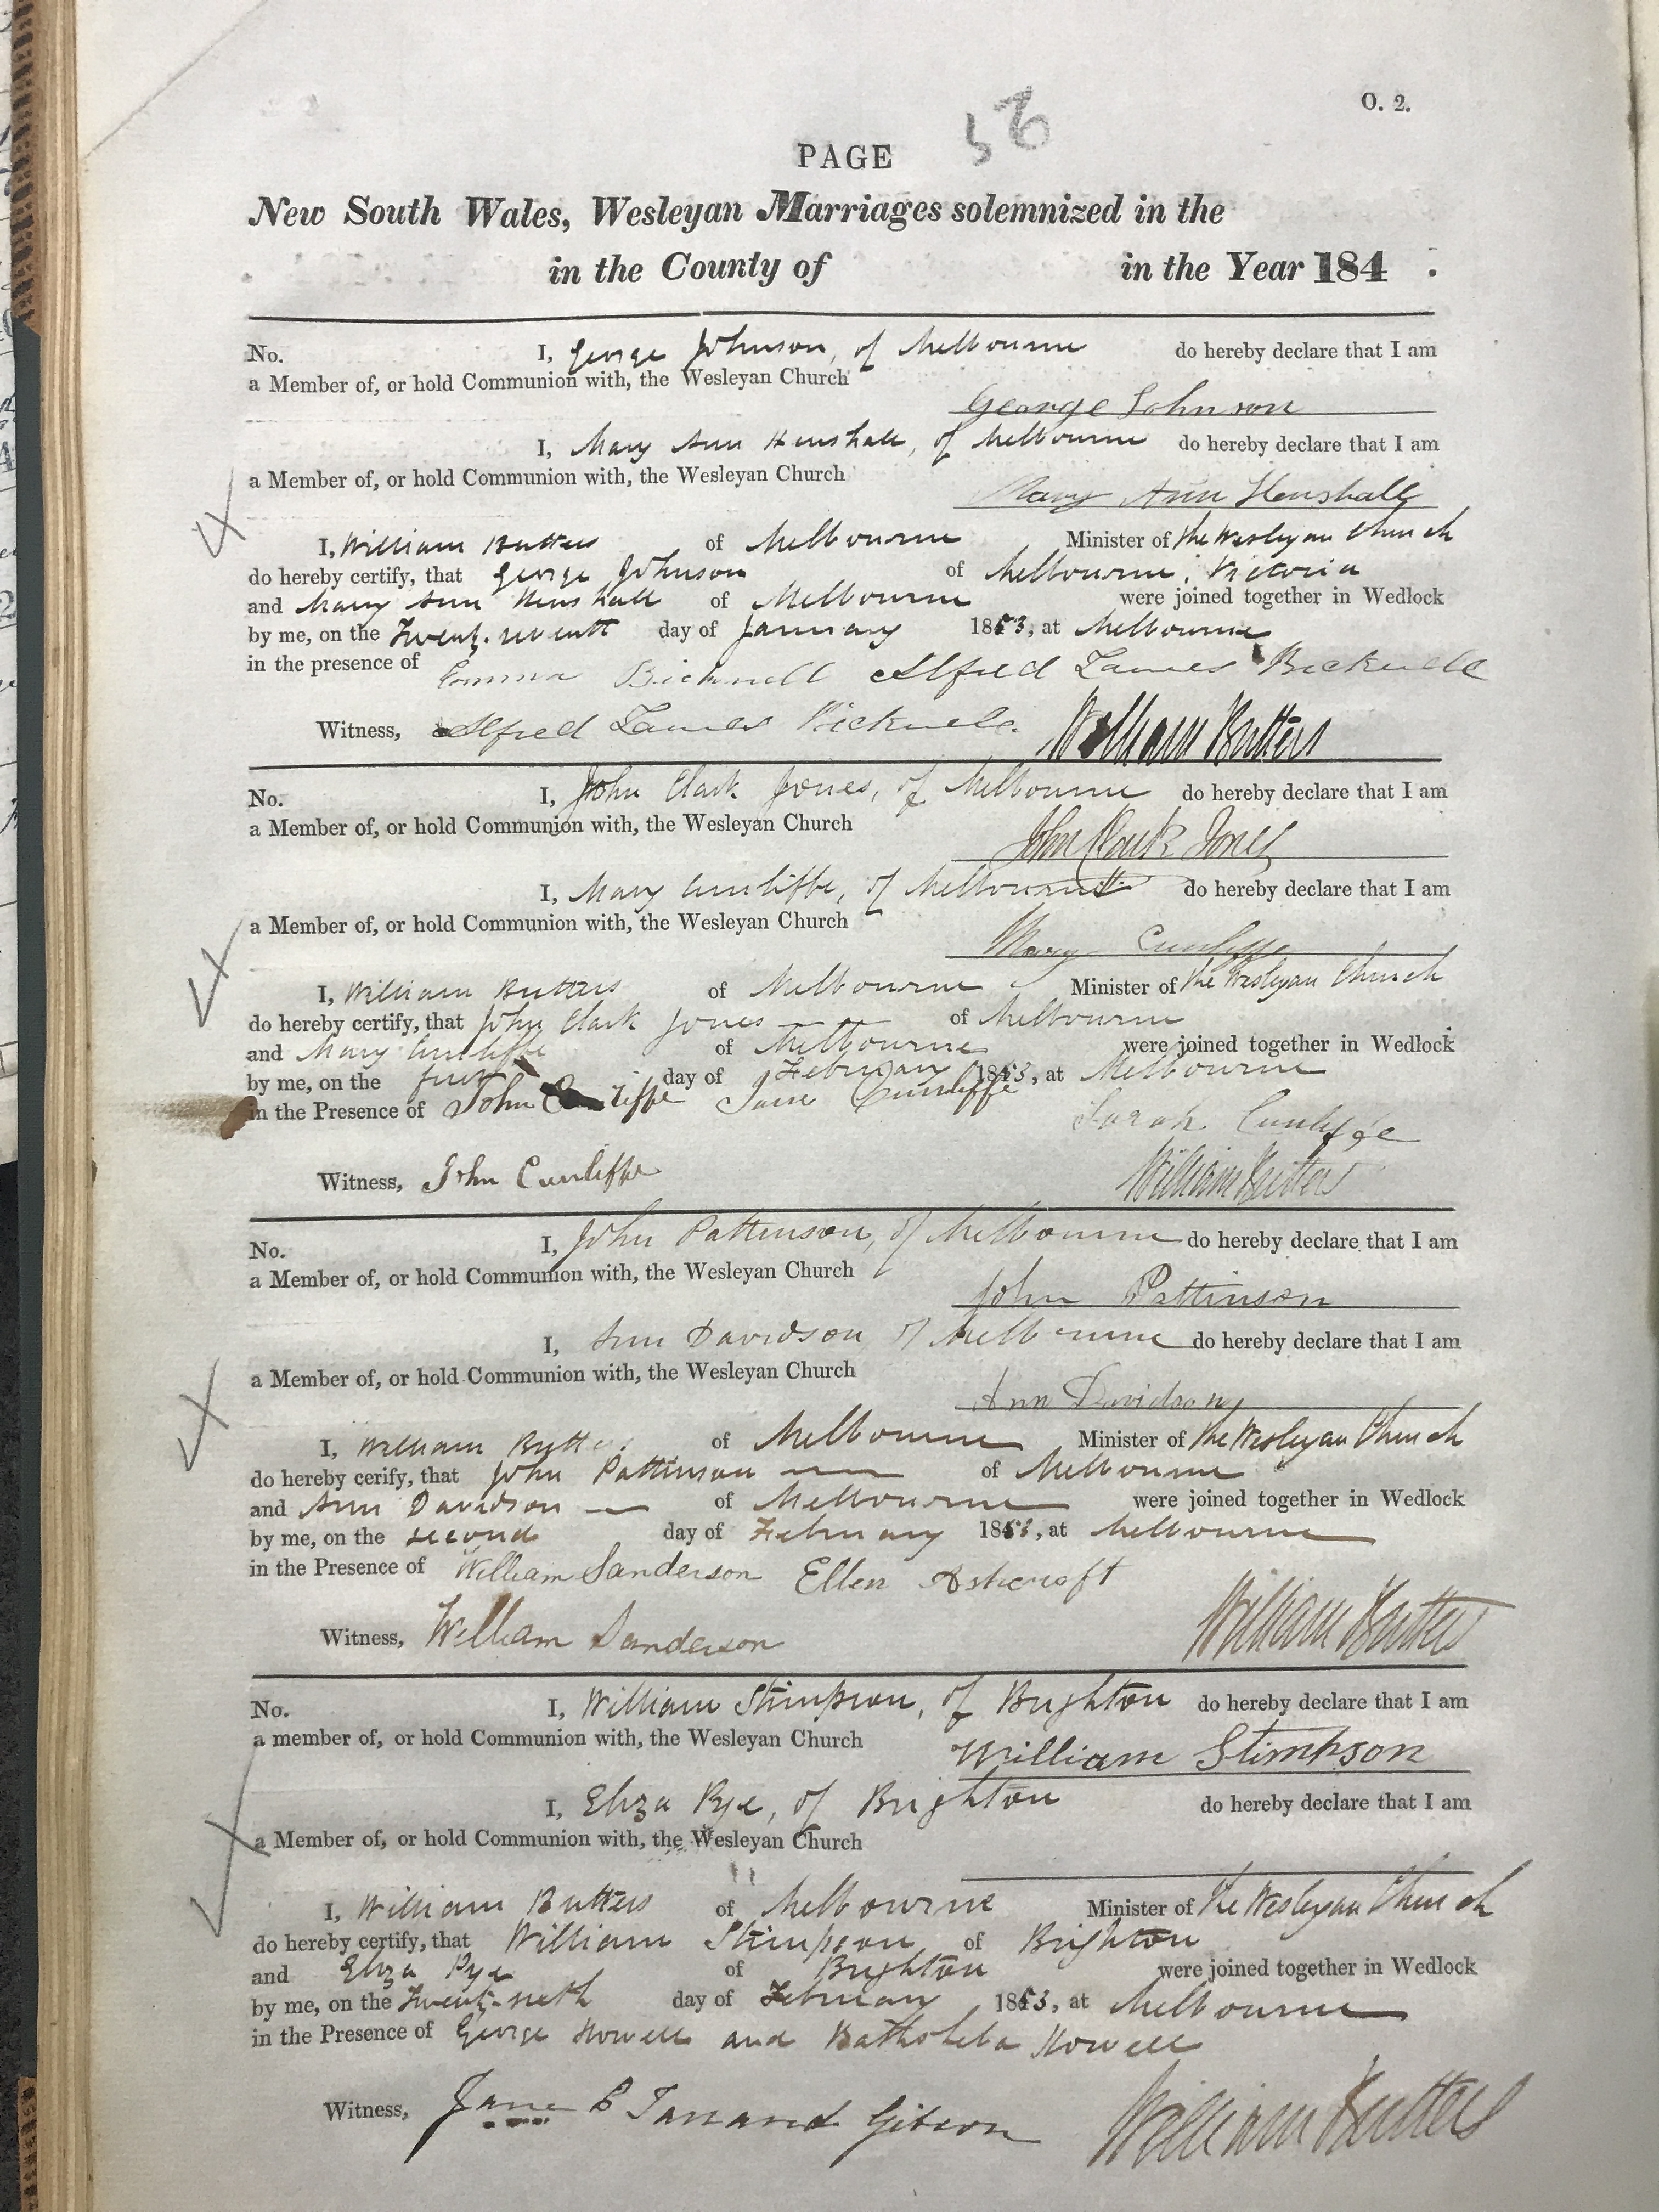 O. 2.
PAGE 56
New South Wales, Wesleyan Marriages solemnized in the
in the County of in the Year 184 .
No. I, George Johnson, of Melbourne do hereby declare that I am
a Member of, or hold Communion with, the Wesleyan Church
George Johnson
I, Mary Ann Henshall, of Melbourne do hereby declare that I am
a Member of, or hold Communion with, the Wesleyan Church
Mary Ann Henshall
I, William Butters of Melbourne Minister of the Wesleyan Church
do hereby certify, that George Johnson of Melbourne, Victoria
and Mary Ann Henshall of Melbourne were joined together in Wedlock
by me, on the Twenty-seventh day of January 1853, at Melbourne
in the presence of Emma Bicknell Alfred James Bicknell
Witness, Alfred James Bicknell. William Butters
No. I, John Clark Jones, of Melbourne do hereby declare that I am
a Member of, or hold Communion with, the Wesleyan Church
John Clark Jones
I, Mary Cunliffe, of Melbourne do hereby declare that I am
a Member of, or hold Communion with, the Wesleyan Church
Mary Cunliffe
I, William Butters of Melbourne Minister of the Wesleyan Church
do hereby certify, that John Clark Jones of Melbourne
and Mary Cunliffe of Melbourne were joined together in Wedlock
by me, on the first day of February 1853, at Melbourne
in the Presence of John Cunliffe Jane Cunliffe
Sarah Cunliffe
Witness, John Cunliffe William Butters
No. I, John Pattinson, of Melbourne do hereby declare that I am
a Member of, or hold Communion with, the Wesleyan Church
John Pattinson
I, Ann Davidson of Melbourne do hereby declare that I am
a Member of, or hold Communion with, the Wesleyan Church
Ann Davidson
I, William Butters of Melbourne Minister of the Wesleyan Church
do hereby cerify, that John Pattinson of Melbourne
and Ann Davidson of Melbourne were joined together in Wedlock
by me, on the second day of February 1853, at Melbourne
in the Presence of William Sanderson Ellen Ashcroft
Witness, William Sanderson William Butters
No. I, William Stimpson, of Brighton do hereby declare that I am
a member of, or hold Communion with, the Wesleyan Church
William Stimpson
I, Eliza Pye, of Brighton do hereby declare that I am
a Member of, or hold Communion with, the Wesleyan Church
I, William Butters of Melbourne Minister of the Wesleyan Church
do hereby certify, that William Stimpson of Brighton
and Eliza Pye of Brighton were joined together in Wedlock
by me, on the Twenty-sixth day of February 1853, at Melbourne
in the Presence of George Howell and Bathsheba Howell
Witness, Jane B Gibson William Butters